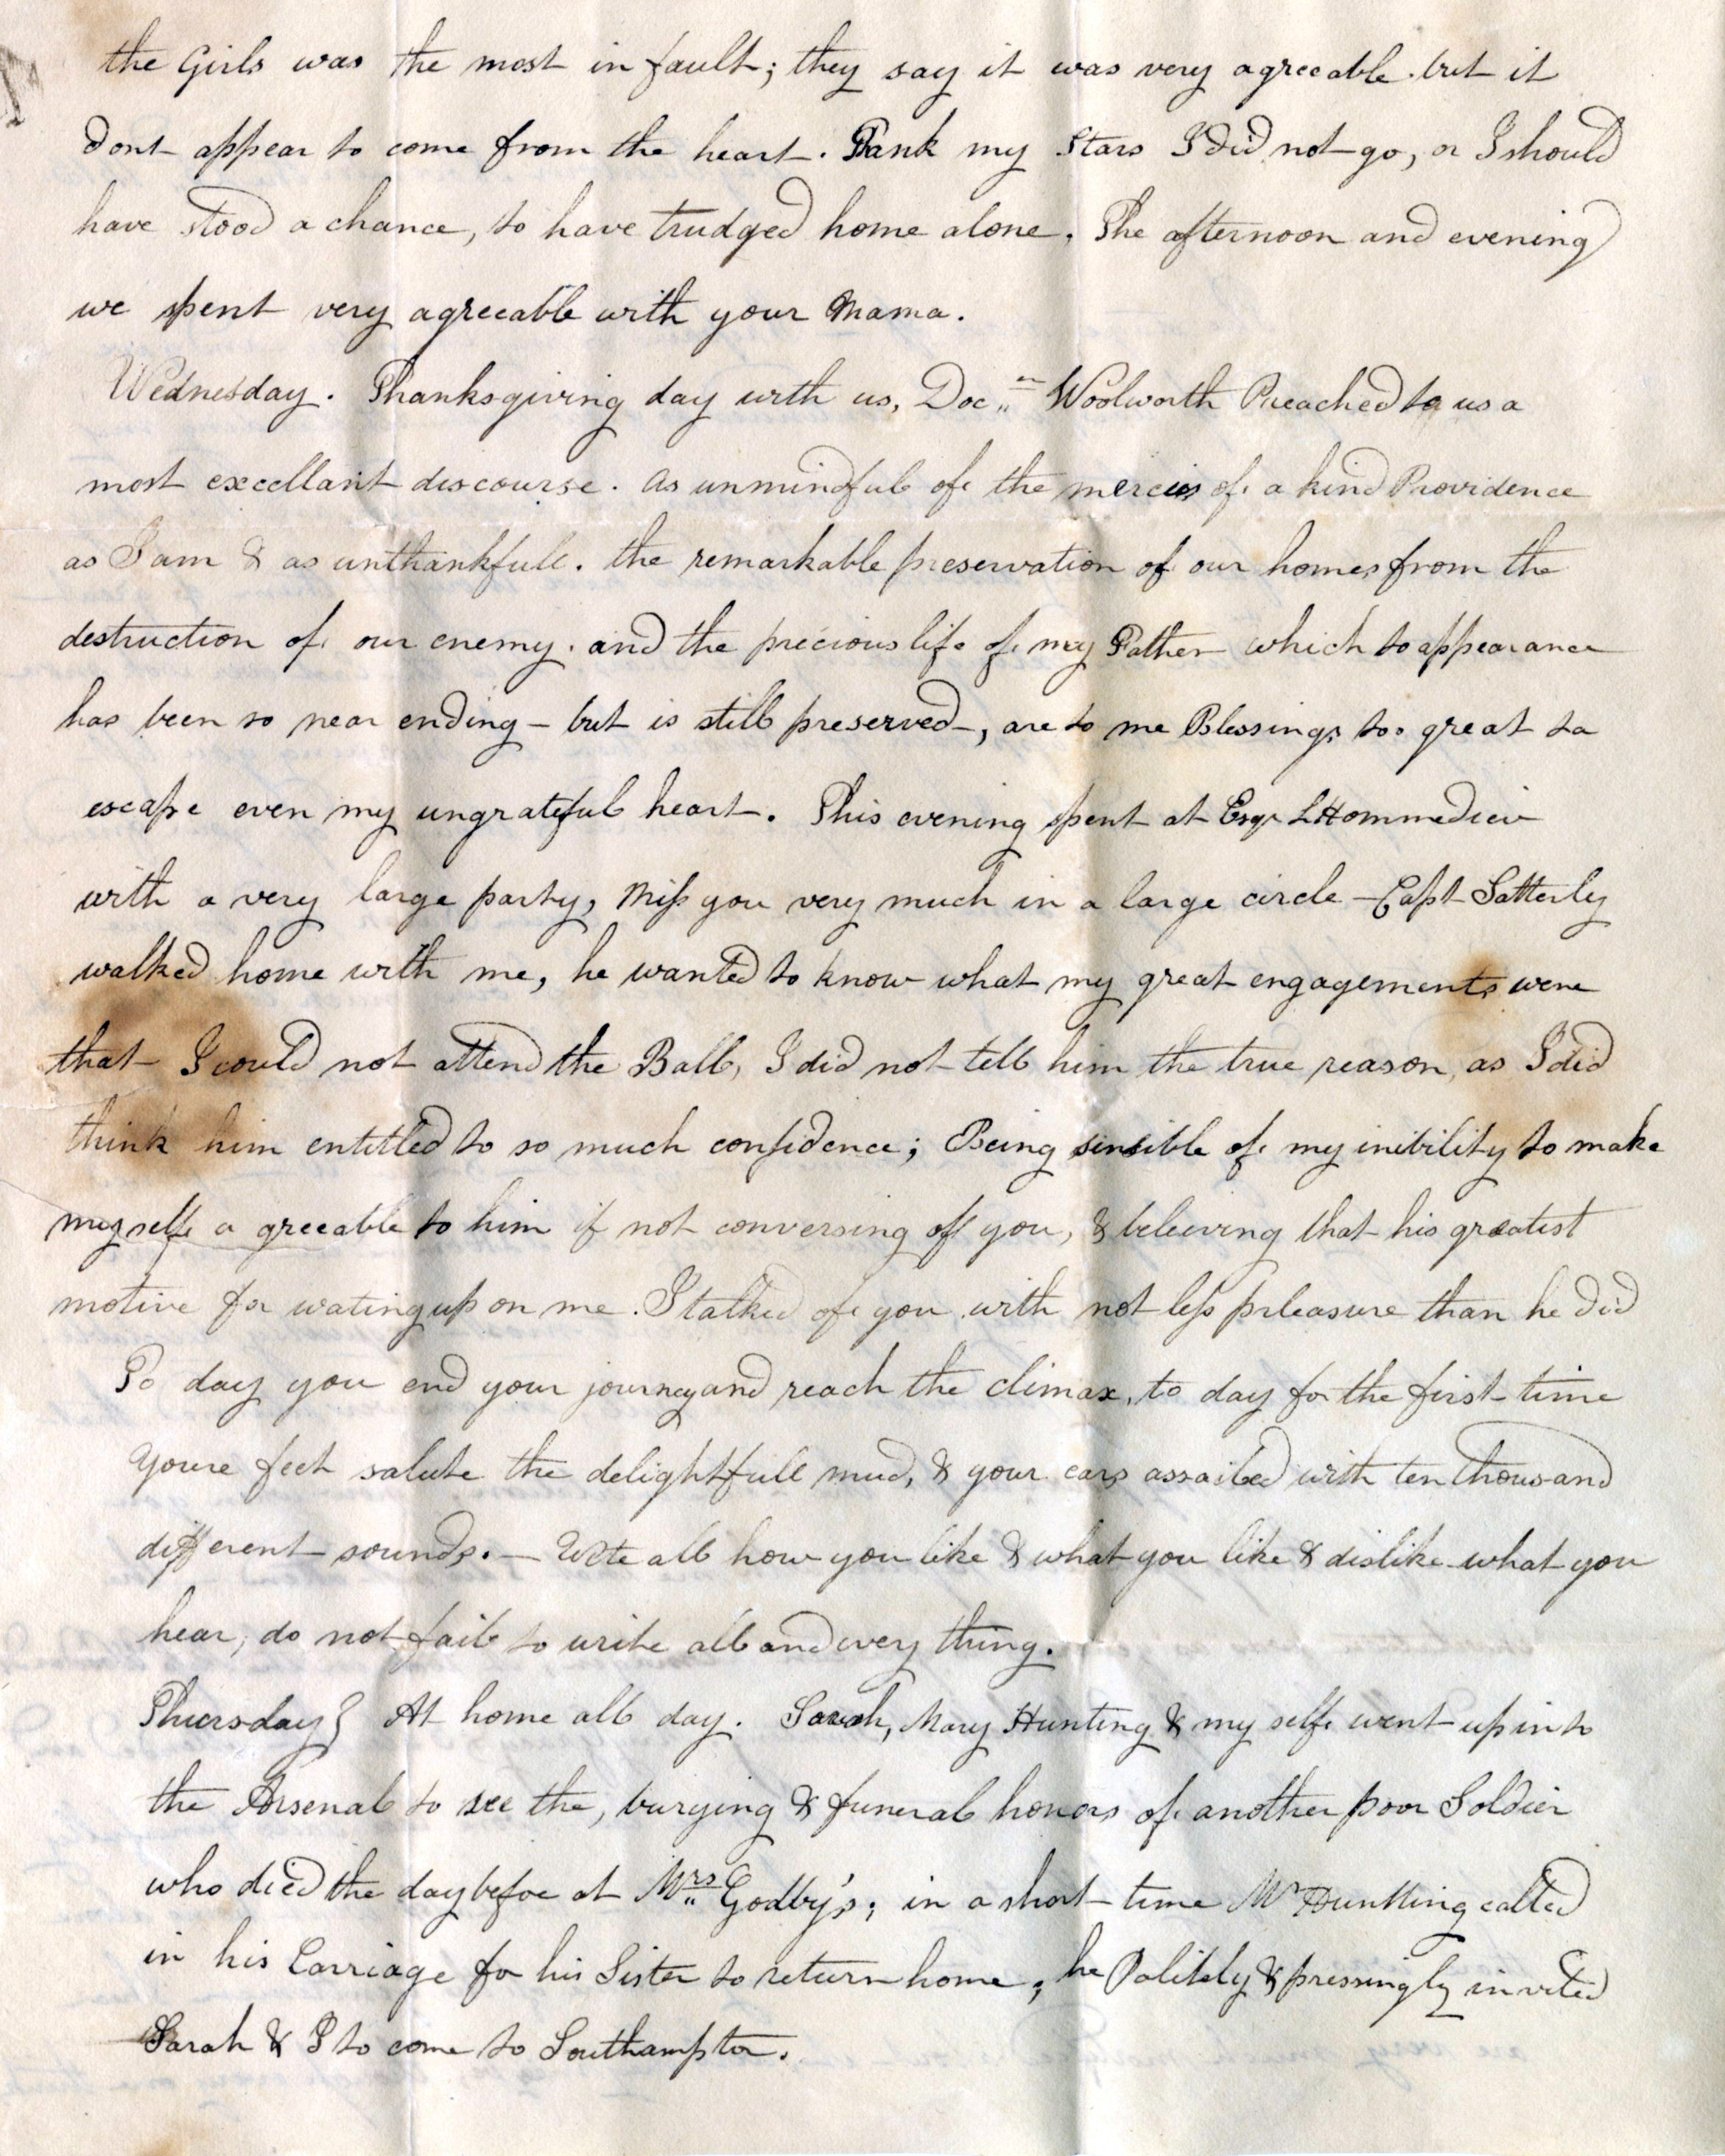 the Girls was the most in fault; they say it was very agreeable. but it
dont appear to come from the heart. Tank my Stars I did not go, or I should
have stood a chance, to have trudged home alone. The afternoon and evening
we spent very agreeable with your Mama.
Wednesday. Thanksgiving day with us, Doc.,, Woolworth Preached to us a
most excellant discourse. as unmindful of the mercies of a kind Providence
as I am & as unthankfull. the remarkable preservation of our homes from the
destruction of our enemy. and the precious life of my Father which to appearance
has been so near ending - but is still preserved -, are to me Blessings too great to
escape even my ungrateful heart. This evening spent at Esqr LHommedieu
with a very large party, miss you very much in a large circle - Capt Satterly
walked home with me, he wanted to know what my great engagements were
that I could not attend the Ball, I did not tell him the true reason, as I did
think him entitled to so much confidence; Being sensible of my inibility to make
my self a greeable to him if not conversing off you, & beleeving that his greatest
motive for wating up on me. I talked of you with not less prleasure than he did
To day you end your journey and reach the climax, to day for the first time
youre feet salute the delightfull mud, & your ears assailed with ten thousand
different sounds. - Write all how you like & what you like & dislike what you
hear, do not fail to write all and every thing.
Thursday } At home all day. Sarah, Mary Hunting & my self went up in to
the Arsenal to see the, burying & funeral honors of another poor Soldier
who died the day befoe at Mrs Godby's; in a short time Mr Huntting called
in his Carriage for his Sister to return home, he Politely & pressingly invited
Sarah & I to come to Southampton.